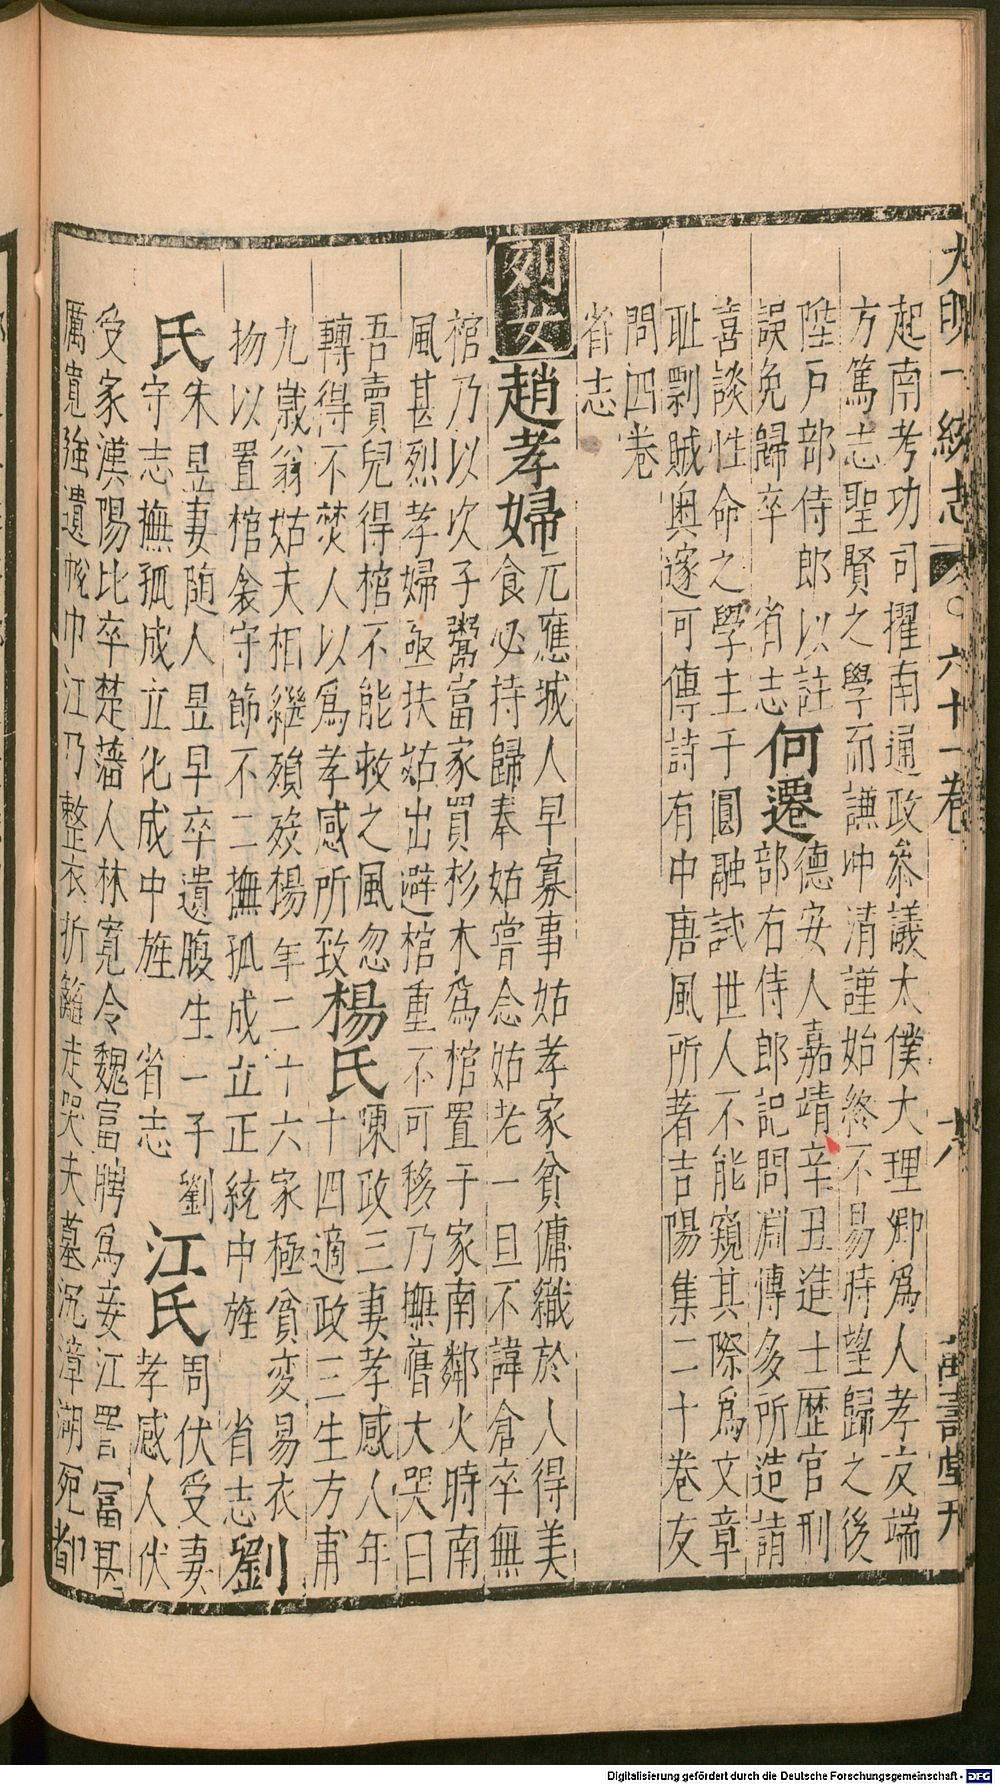 大明一統志 六十一卷 六 萬壽堂刊
起南考功司擢南通政叅議太僕大理卿爲人孝友端
方篤志聖賢之學而謙冲清謹始終不易時望歸之後
陞戶部侍郎以註
誤免歸卒 省志
何遷
德安人嘉靖辛丑進士歴官刑
部右侍郎記問淵愽多所造請
喜談性命之學主于圓融試世人不能窺其際爲文章
耻剽賊奥邃可傳詩有中唐風所著吉陽集二十卷友
問四卷
省志
列女
趙孝婦
元應城人早寡事姑孝家貧傭織於人得美
食必持歸奉姑嘗念姑老一旦不諱倉卒無
棺乃以次子鬻富家買杉木爲棺置于家南鄰火時南
風甚烈孝婦亟扶姑出避棺重不可移乃撫膺大哭曰
吾賣兒得棺不能救之風忽
轉得不焚人以爲孝感所致
楊氏
陳政三妻孝感人年
十四適政三生方甫
九歲翁姑夫相繼殞歿楊年二十六家極貧变易衣
物以置棺衾守節不二撫孤成立正統中旌 省志
劉氏
朱昱妻随人昱早卒遺腹生一子劉
守志撫孤成立化成中旌 省志
江氏
周伏受妻
孝感人伏
受家漢陽比卒楚藩人林寬令魏富聘爲妾江詈富其
厲寛強遺帨巾江乃整衣折籬走哭夫墓沉漳湖死都
Digitalisierung gefördert durch die Deutsche Forschungsgemeinschaft - DFG